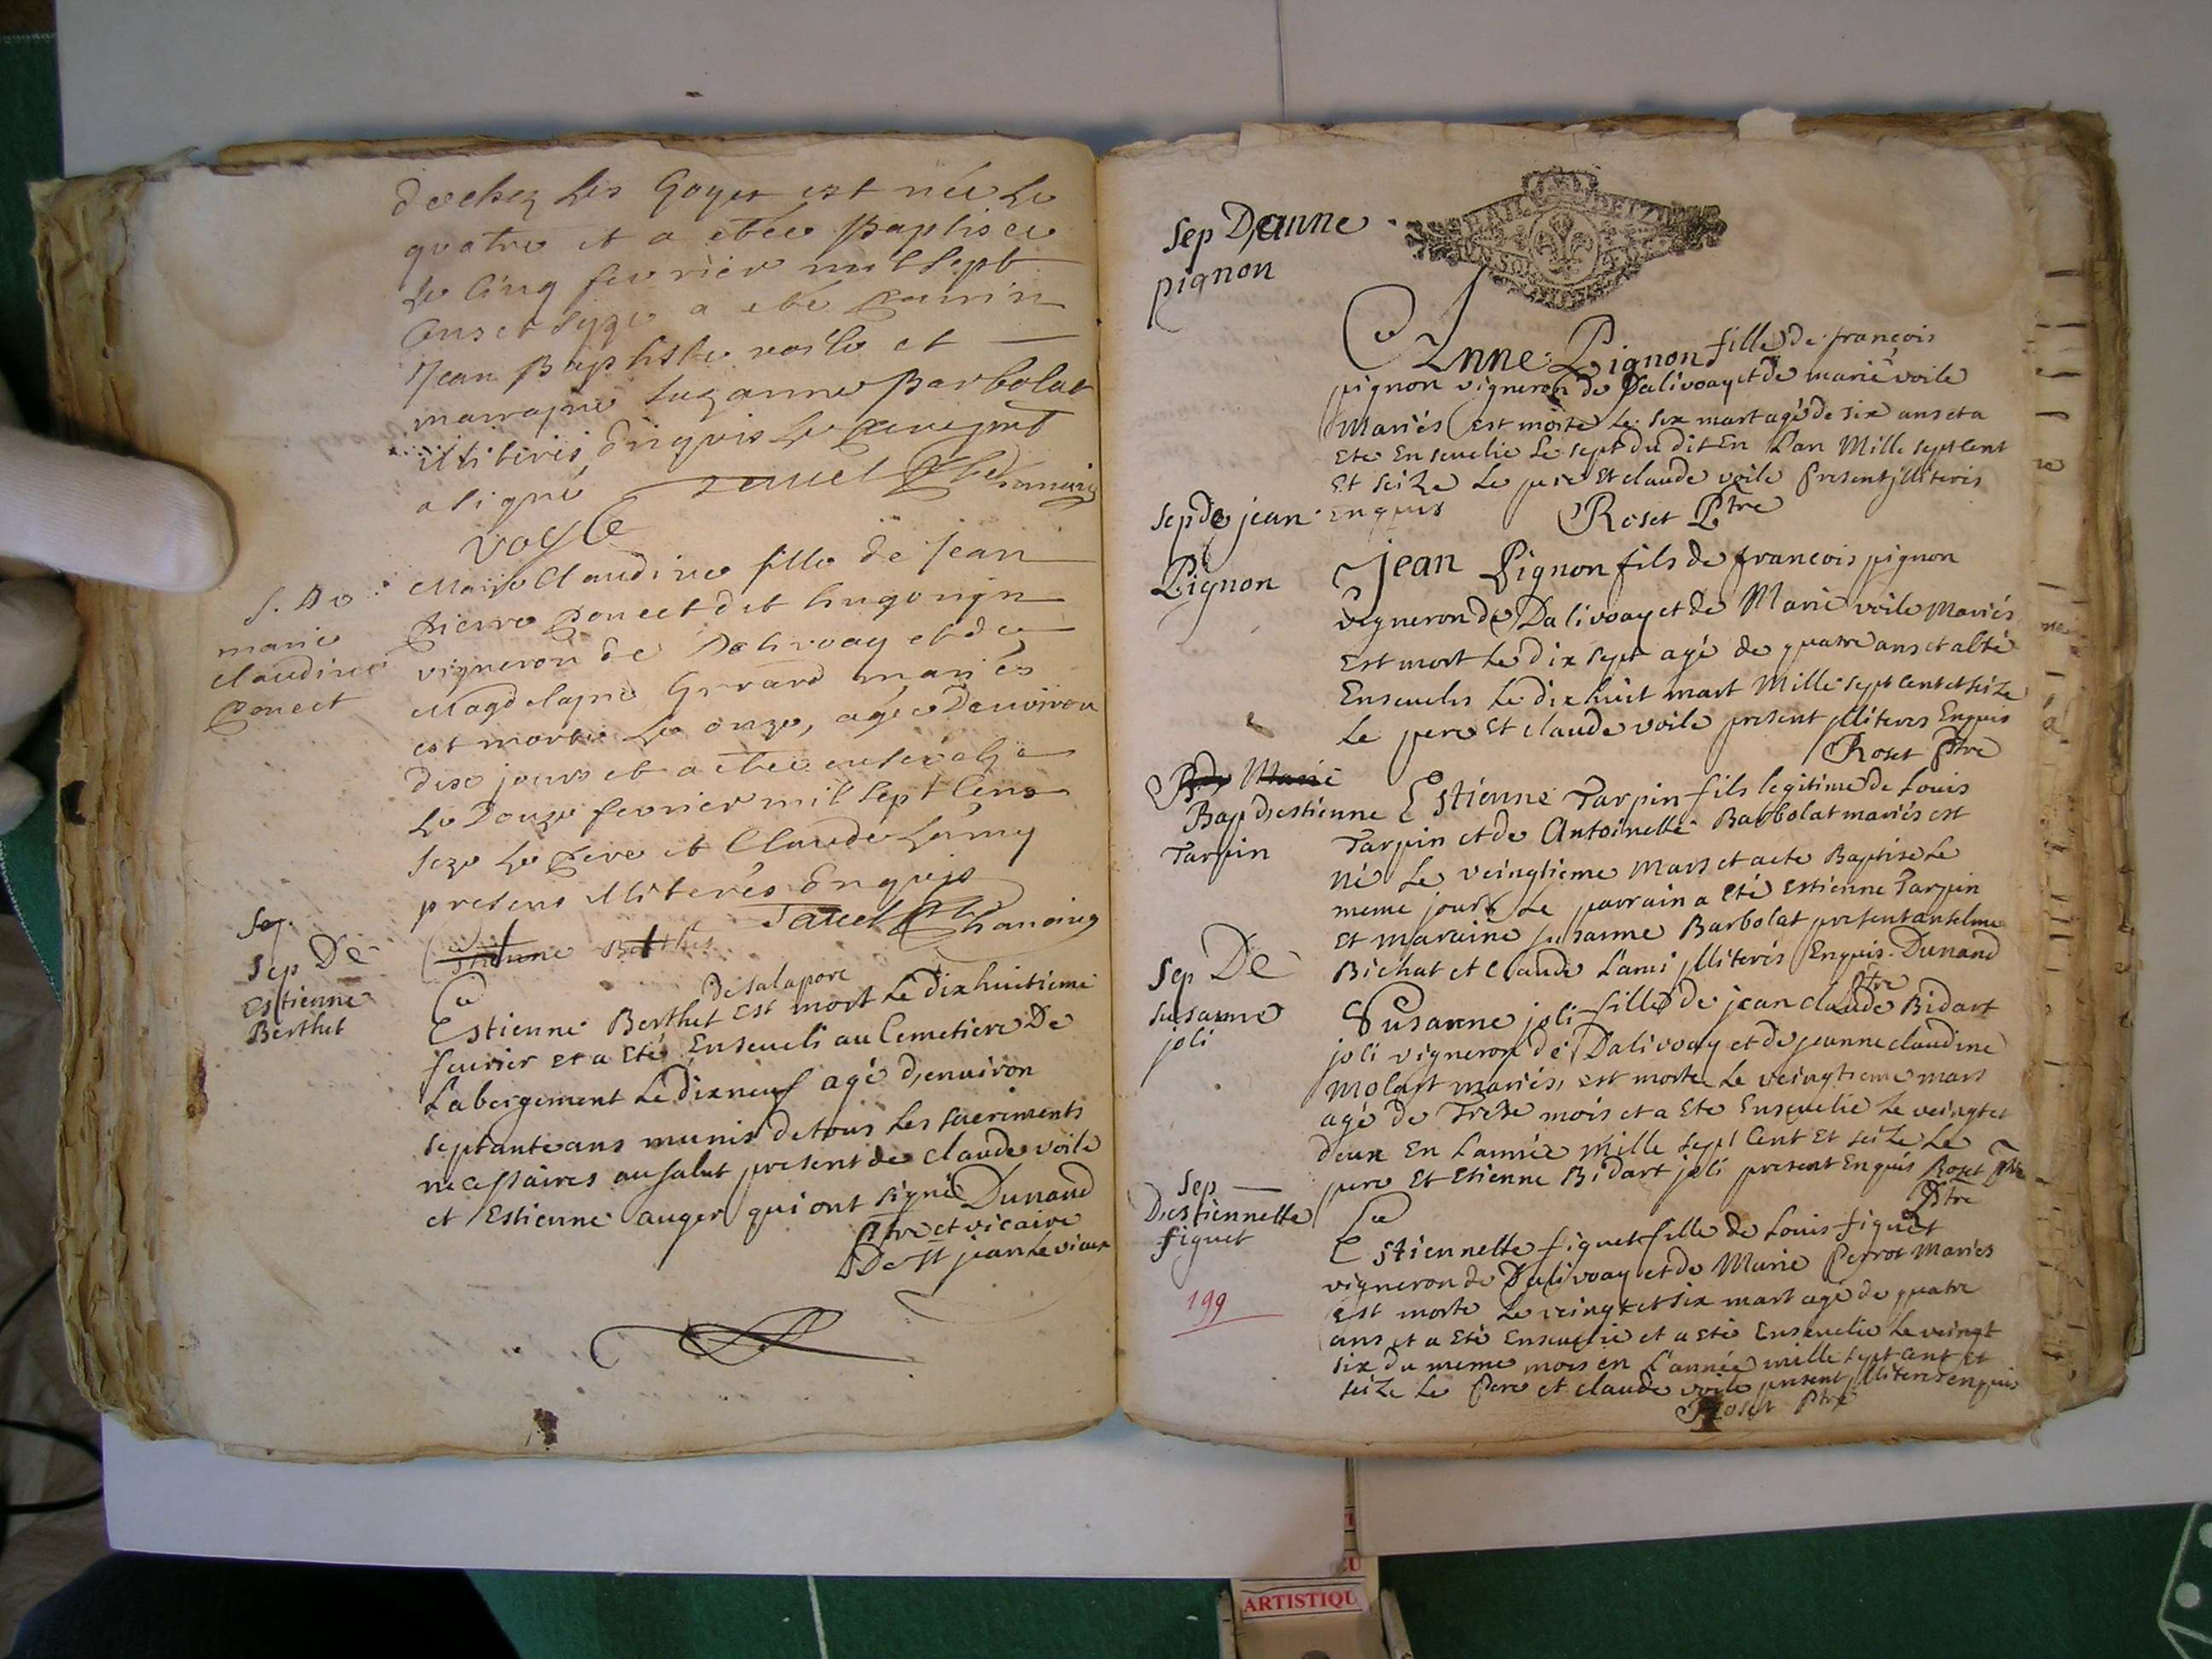 de chez les Goyet est née le
quatre et a etée Baptisée
le cinq fevrier mil sept
cens et seze a eté parrin
Jean Baptiste voile et
marrayne Suzanne Barbolat
illiteris enquis le
a signé
voyle
S. De
marie
claudine
Ponect
Marie Claudine fille de Jean
pierre Ponect dit hugonin
vigneron de Dalivoay et de
Magdelayne Girard mariés
est morte le onze, agée Denviron
dix jours et a etée ensevelie
le Douze fevrier mil sept cens
seze le pere et Claude Lamy
presens illiterés Enquis
Sep.
Sep De
Estienne
Berthet
De salapore
Estienne Berthet est mort le dix huitieme
feurier et a eté Enseueli au Cemetiere De
Labergement le dix neuf agé d'enuiron
septante ans munis de tous les sacriments
necessaires au salut present de claude voile
et Estienne auger qui ont signé Dunand
ptre et vicaire
De st jean le vieux
Sep D'anne
pignon
Anne Pignon fille de françois
pignon vigneron de Dalivoay et de marie voile
Mariés est morte le six mart agé de six ans et a
Ete Enseuelie le sept du dit En L'an Mille sept Cent
Et seize le pere Et claude voile present jlliteris
enquis Roset Ptre
Sep de jean
Pignon
Jean Pignon fils de francois pignon
vigneron de Dalivoay et de Marie voile Mariés
Est mort le dix sept agé de quatre ans et a esté
Enseuelis le dix huit mart Mille sept Cent et seize
Le pere Et claude voile present jlliteres Enquis
Roset Ptre
Marie
Bap d'estienne
Tarpin
Estienne Tarpin fils legitime de Louis
Tarpin et de Antoinette Barbolat mariés est
né le veingtieme Mars et a ete Baptise le
meme jour le parrain a eté Estienne Tarpin
Et maraine susanne Barbolat present anselme
Bichat et claude L'ami jlliterés Enquis. Dunand
ptre
Sep De
susanne
joli
Susanne joli fille de jean claude Bidart
joli vigneron de Dalivoay et de jeanne claudine
Molart mariés, est morte le veingtieme mars
agé de Treze mois et a Ete Enseuelie le veingt et
deux En L'année Mille sept Cent Et seize le
pere Et Etienne Bidart joli present Enquis Roset Ptre
Ptre
Sep
D'estiennette
figuet
Estiennette figuet fille de Louis figuet
vigneron de Dalivoay et de Marie Perrot Mariés
est morte le veingt et six mart agé de quatre
ans et a Eté Enseuelie et a eté Enseuelie le veingt
six du meme mois en L'année mille sept Cent et
seize le Pere et claude voile present jlliteres enquis
Roset Ptre
199
ARTISTIQU